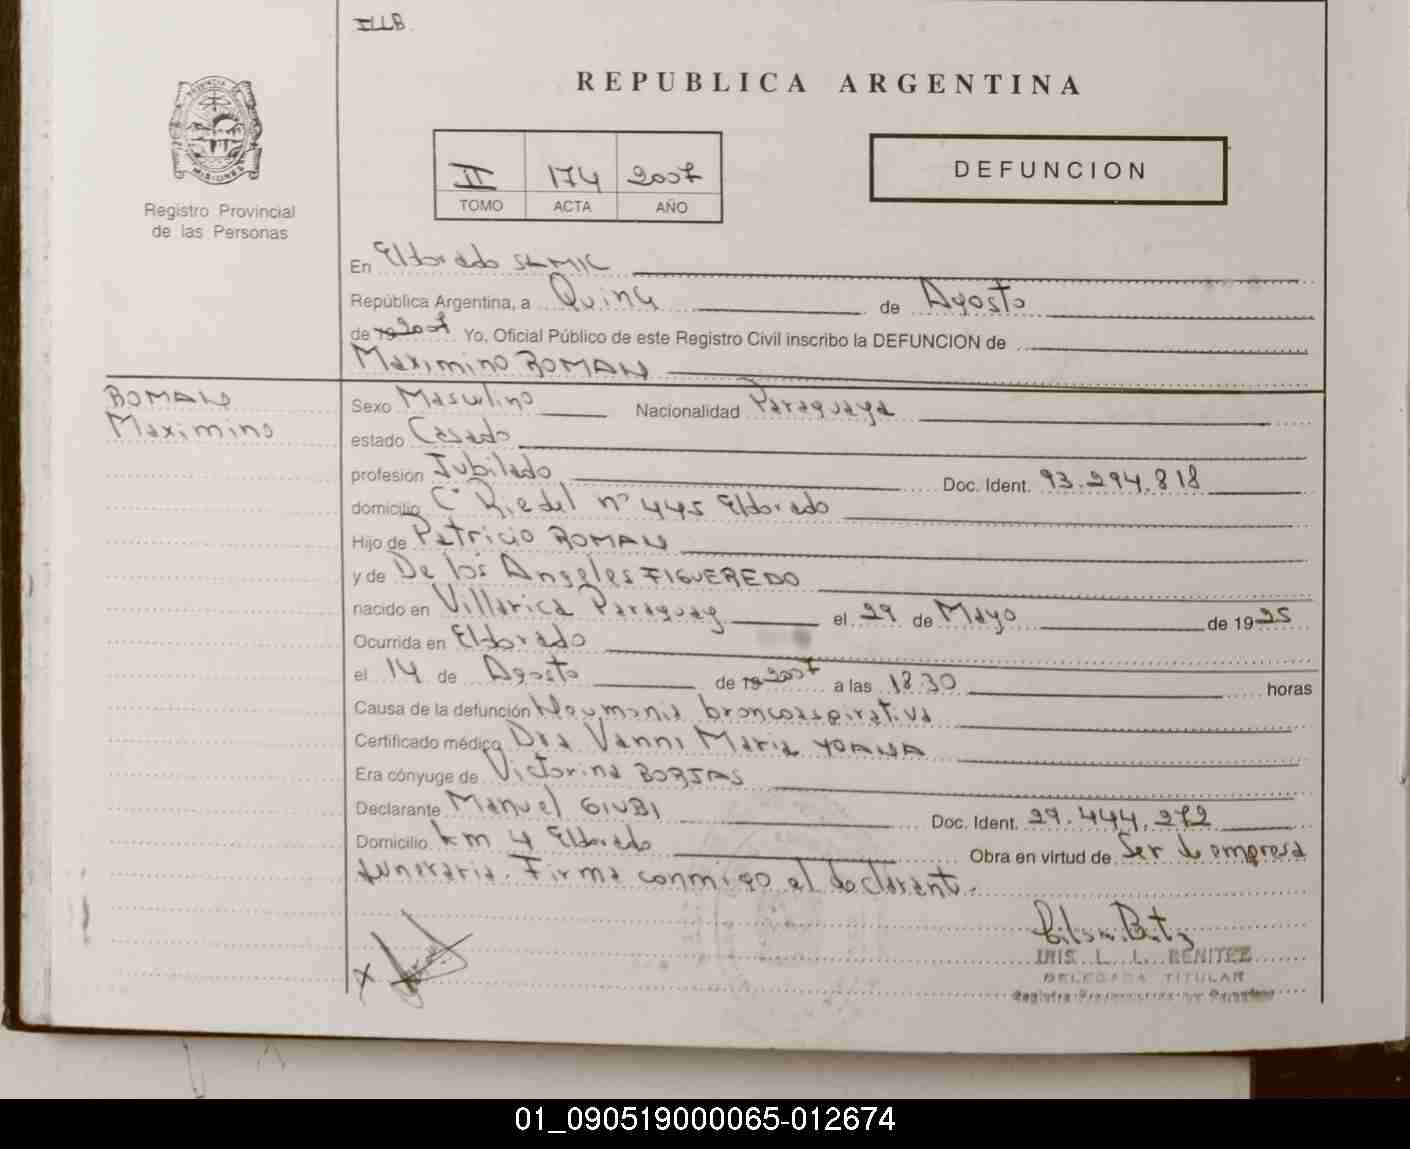 ILLB
REPUBLICA ARGENTINA
PROVINCIA
MISIONES
II 174 2007
TOMO ACTA AÑO
DEFUNCION
Registro Provincial
de las Personas
En Eldorado SLMIC
República Argentina, a Quince de Agosto
de 19 2007 Yo, Oficial Público de este Registro Civil inscribo la DEFUNCION de
Maximino ROMAN
ROMAN
Maximino
Sexo Masculino Nacionalidad Paraguaya
estado Casado
profesión Jubilado Doc. Ident. 93.294.818
domicilio Cº Riedel nº 445 Eldorado
Hijo de Patricio ROMAN
y de De los Angeles FIGUEREDO
nacido en Villarica Paraguay el 29 de Mayo de 1925
Ocurrida en Eldorado
el 14 de Agosto de 19 2007 a las 18.30 horas
Causa de la defunción Neumonia broncoaspirativa
Certificado médico Dra Vanni Maria YOANA
Era cónyuge de Victorina BORJAS
Declarante Manuel GIUBI Doc. Ident. 29.444.272
Domicilio km 4 Eldorado Obra en virtud de Ser de empresa
funeraria. Firma conmigo el declarante.
X
IRIS L. L. BENITEZ
DELEGADA TITULAR
Registro Provincial de las Personas
01_090519000065-012674